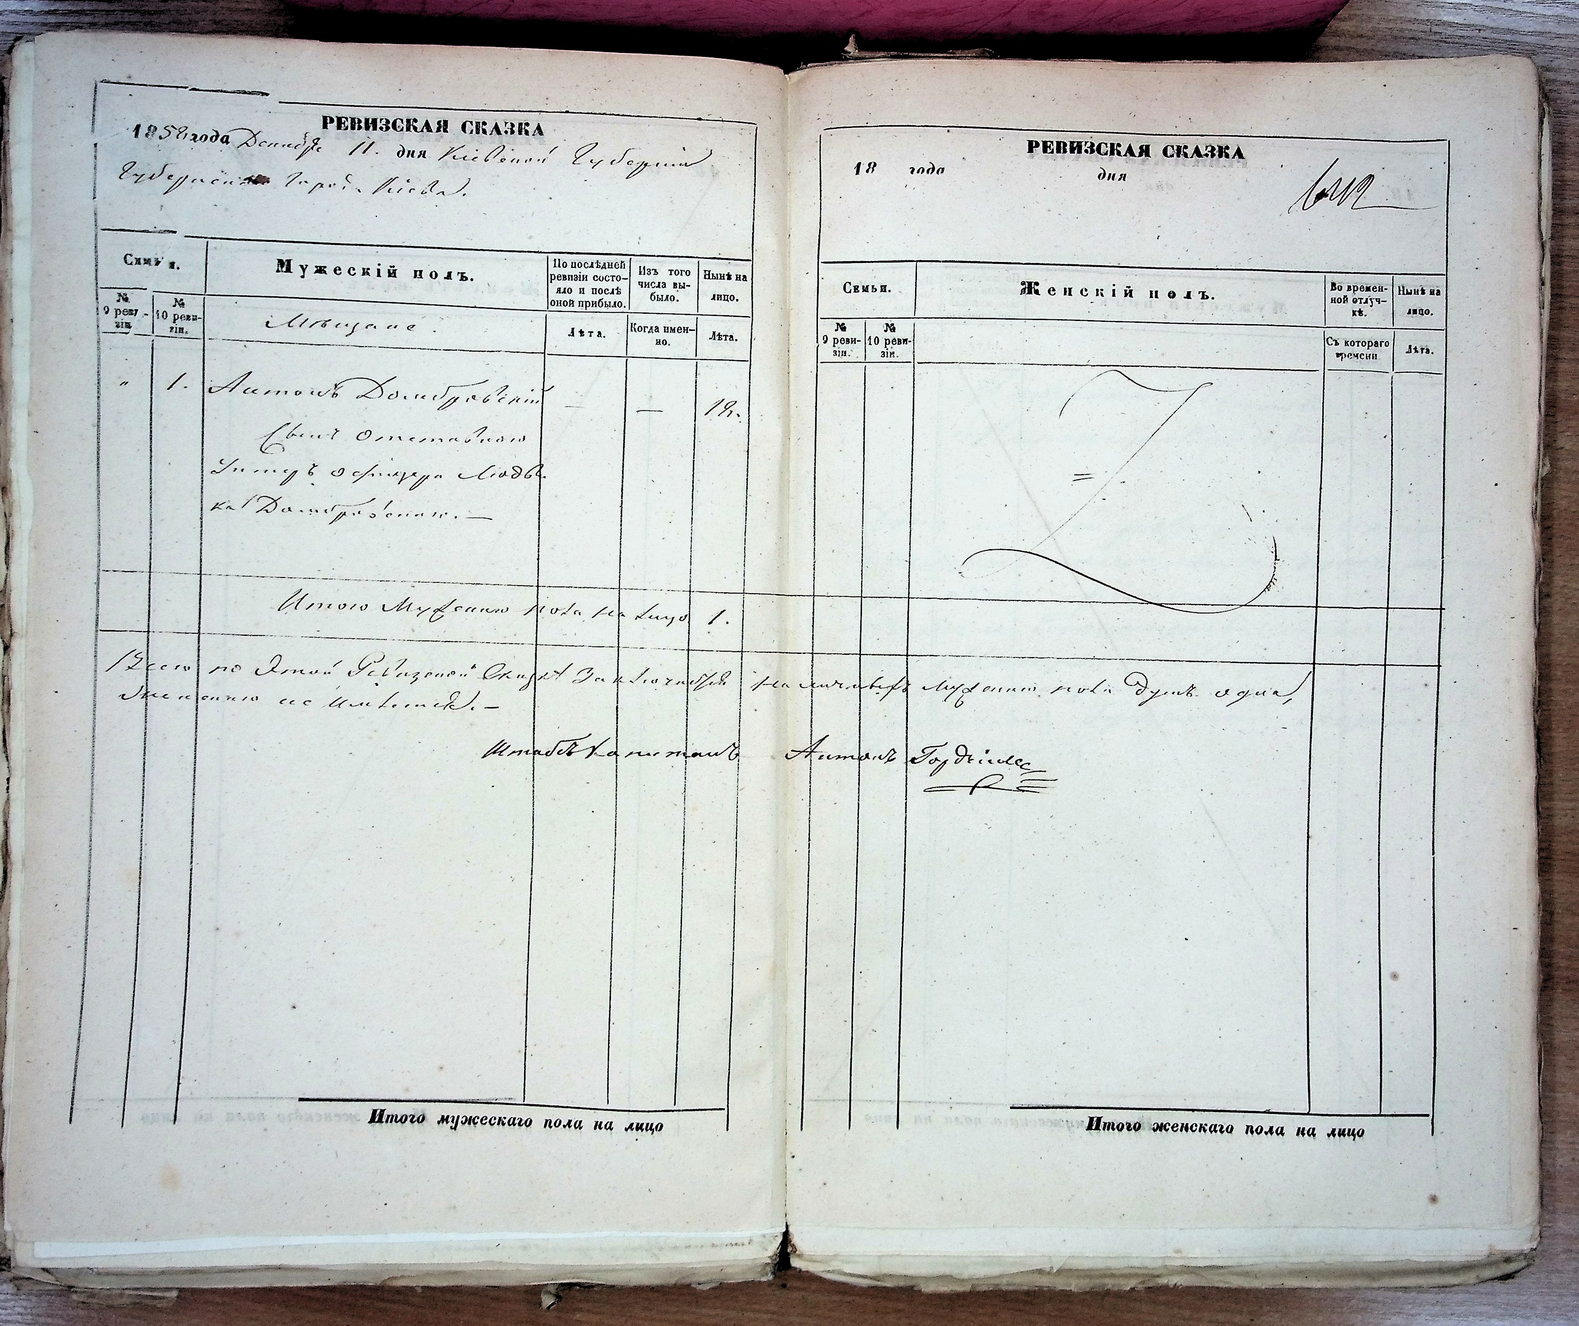 РЕВИЗСКАЯ СКАЗКА
1858 года Декабря 11. дня Кіевской Губерніи
Губернскаго Города Кіева.
Семьи.
Мужескій полъ.
По послѣдней ревизіи состояло и послѣ оной прибыло.
Изъ того числа выбыло.
Нынѣ на лицо.
№ 9 ревизіи.
№ 10 ревизіи.
Мѣщане.
Лѣта.
Когда именно.
Лѣта.
" 1. Антонъ Домбровскій — — 19.
Сынъ отставнаго
Унтеръ офицера
Домбровскаго. —
Итого Мужеска пола на лицо 1.
Всего по Этой Ревизской Сказкѣ Заключается на личныхъ Мужеска пола Душъ одна,
Женскаго не Имѣется. —
Штабсъ Капитанъ Антонъ
Итого мужескаго пола на лицо
РЕВИЗСКАЯ СКАЗКА
18 года дня
Семьи.
Женскій полъ.
Во временной отлучкѣ.
Нынѣ на лицо.
№ 9 ревизіи.
№ 10 ревизіи.
Съ котораго времени
Лѣта.
Итого женскаго пола на лицо